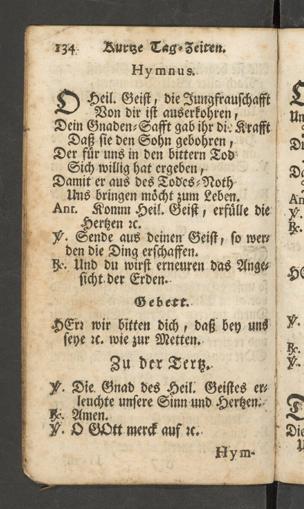 134 Kurtze Tag-Zeiten.
Hymnus.
O Heil. Geist, die Jungfrauschafft
Von dir ist auserkohren,
Dein Gnaden-Safft gab ihr die Krafft
Daß sie den Sohn gebohren,
Der für uns in den bittern Tod
Sich willig hat ergeben,
Damit er aus des Todes-Noth
Uns bringen möcht zum Leben.
Ant. Komm Heil. Geist, erfülle die
Hertzen ꝛc.
℣. Sende aus deinen Geist, so wer-
den die Ding erschaffen.
℟. Und du wirst erneuren das Ange-
sicht der Erden.
Gebett.
HErꝛ wir bitten dich, daß bey uns
seye ꝛc. wie zur Metten.
Zu der Tertz.
℣. Die Gnad des Heil. Geistes er-
leuchte unsere Sinn und Hertzen.
℟. Amen.
℣. O GOtt merck auf ꝛc.
Hym-